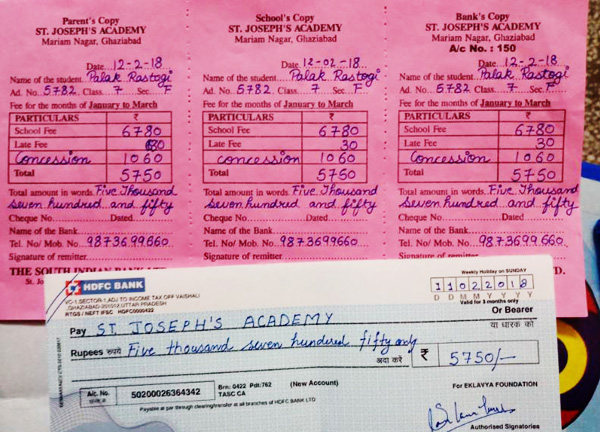 Parent's Copy
ST. JOSEPH'S ACADEMY
Mariam Nagar, Ghaziabad
Date 12-2-18
Name of the student Palak Rastogi
Ad. No. 5782 Class 7 Sec. F
Fee for the months of January to March
PARTICULARS ₹
School Fee 6780
Late Fee 30
Concession 1060
Total 5750
Total amount in words Five Thousand
seven hundred and fifty
Cheque No. Dated
Name of the Bank
Tel. No/ Mob. No. 9873699660
Signature of remitter
School's Copy
ST. JOSEPH'S ACADEMY
Mariam Nagar, Ghaziabad
Date 12-02-18
Name of the student Palak Rastogi
Ad. No. 5782 Class 7 Sec F
Fee for the months of January to March
PARTICULARS ₹
School Fee 6780
Late Fee 30
Concession 1060
Total 5750
Total amount in words Five Thousand
seven hundred and fifty
Cheque No. Dated
Name of the Bank
Tel. No/ Mob. No. 9873699660
Signature of remitter
Bank's Copy
ST. JOSEPH'S ACADEMY
Mariam Nagar, Ghaziabad
A/c No. : 150
Date 12-2-18
Name of the student Palak Rastogi
Ad. No. 5782 Class 7 Sec. F
Fee for the months of January to March
PARTICULARS ₹
School Fee 6780
Late Fee 30
Concession 1060
Total 5750
Total amount in words Five Thousand
seven hundred and fifty
Cheque No. Dated
Name of the Bank
Tel. No/ Mob. No. 9873699660
Signature of remitter
THE SOUTH INDIAN
HDFC BANK
VC-1, SECTOR-1, ADJ TO INCOME TAX OFF VAISHALI
GHAZIABAD-201012, UTTAR PRADESH
RTGS / NEFT IFSC HDFC0000422
Weekly Holiday on SUNDAY
11022018
D D M M Y Y Y Y
Valid for 3 months only
Pay ST JOSEPH'S ACADEMY Or Bearer
या धारक को
Rupees रुपये Five thousand seven hundered fifty only
अदा करें ₹ 5750/-
A/c No. 50200026364342
Brn: 0422 Pdt:762 (New Account)
TASC CA
For EKLAVYA FOUNDATION
Payable at par through clearing/transfer at all branches of HDFC BANK LTD
Authorised Signatories